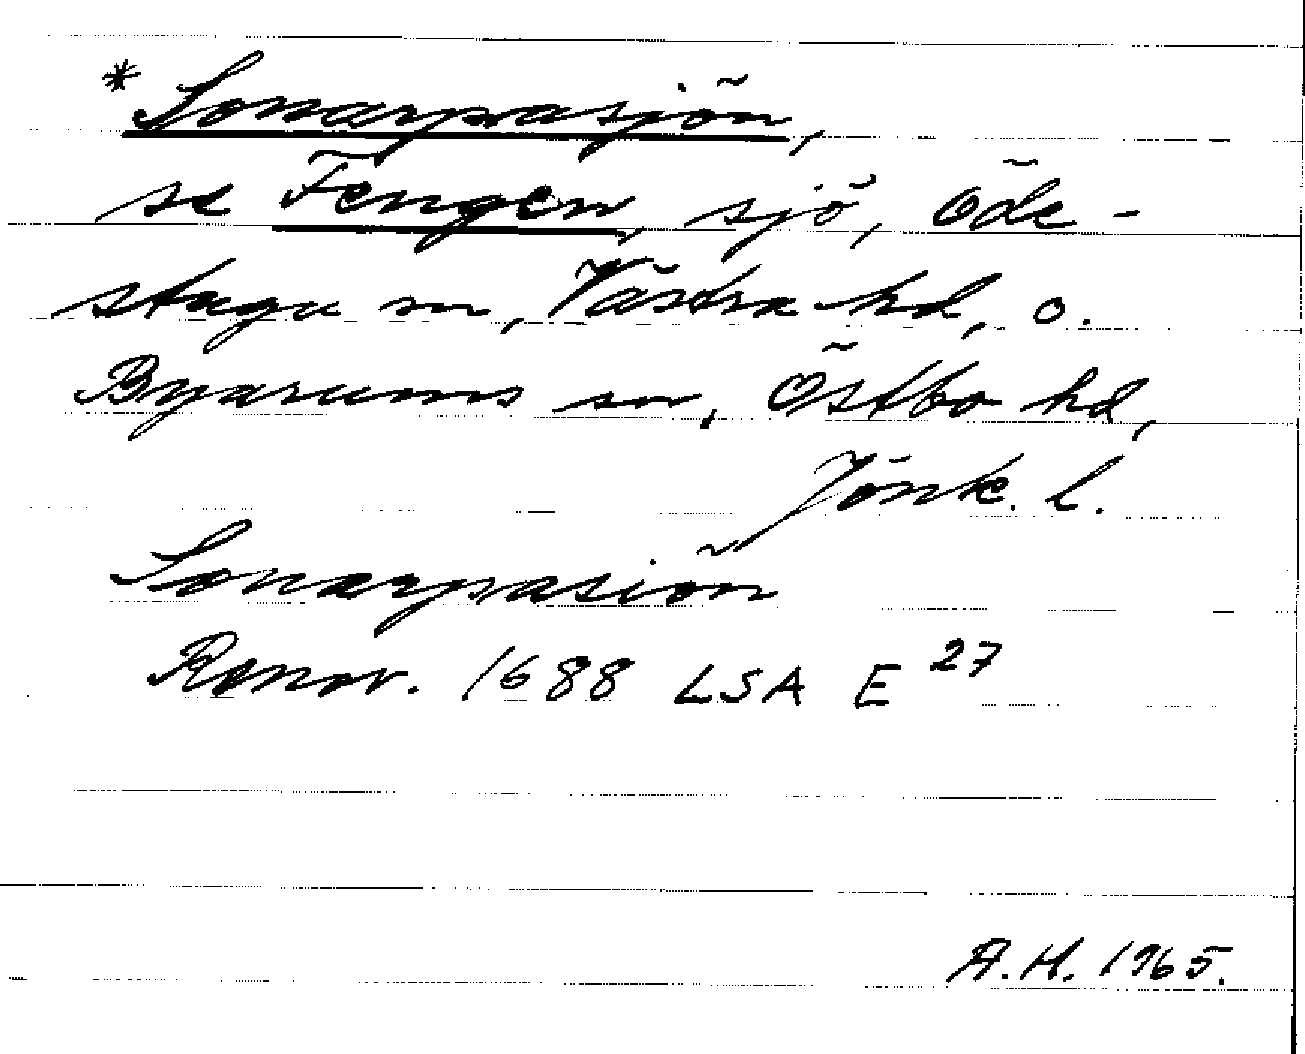 *Sonarpasjön,
se Fengen, sjö, Öde-
stugu sn, Västra hd, o.
Byarums sn, Östbo hd,
Jönk. l.
Sonarpasiön
Ranov. 1688 LSA E 27
A.H. 1965.